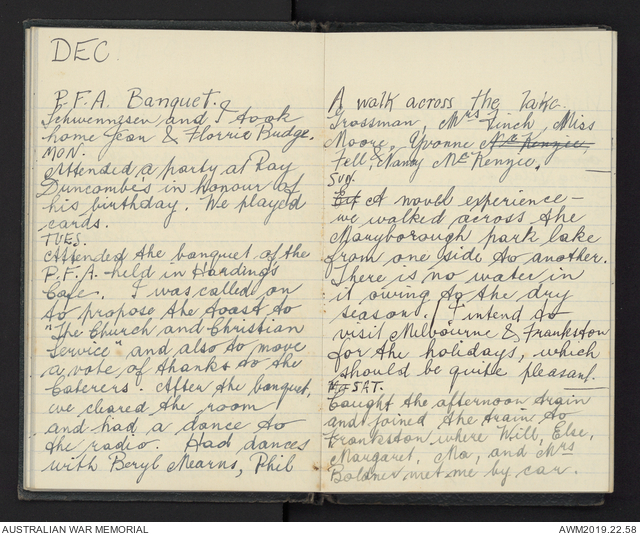 DEC.
P.F.A. Banquet.
Schwennesen and I took
home Jean & Florrie Budge.
MON.
Attended a party at Ray
Duncombe's in honour of
his birthday. We played
cards.
TUES.
Attended the banquet of the
P.F.A. held in Harding's
Cafe. I was called on
to propose the toast to
"The Church and Christian
Service" and also to move
a vote of thanks to the
Caterers. After the banquet,
we cleared the room
and had a dance to
the radio. Had dances
with Beryl Mearns, Phil
A walk across the lake.
Grossman, Mrs Finch, Miss
Moore, Yvonne McKenzie,
Fell, Nancy McKenzie.
SUN.
A novel experience –
we walked across the
Maryborough park lake
from one side to another.
There is no water in
it owing to the dry
season. I intend to
visit Melbourne & Frankston
for the holidays, which
should be quite pleasant.
SAT.
Caught the afternoon train
and joined the train to
Frankston where Will, Else,
Margaret, Ma, and Mrs
met me by car.
AUSTRALIAN WAR MEMORIAL
AWM2019.22.58